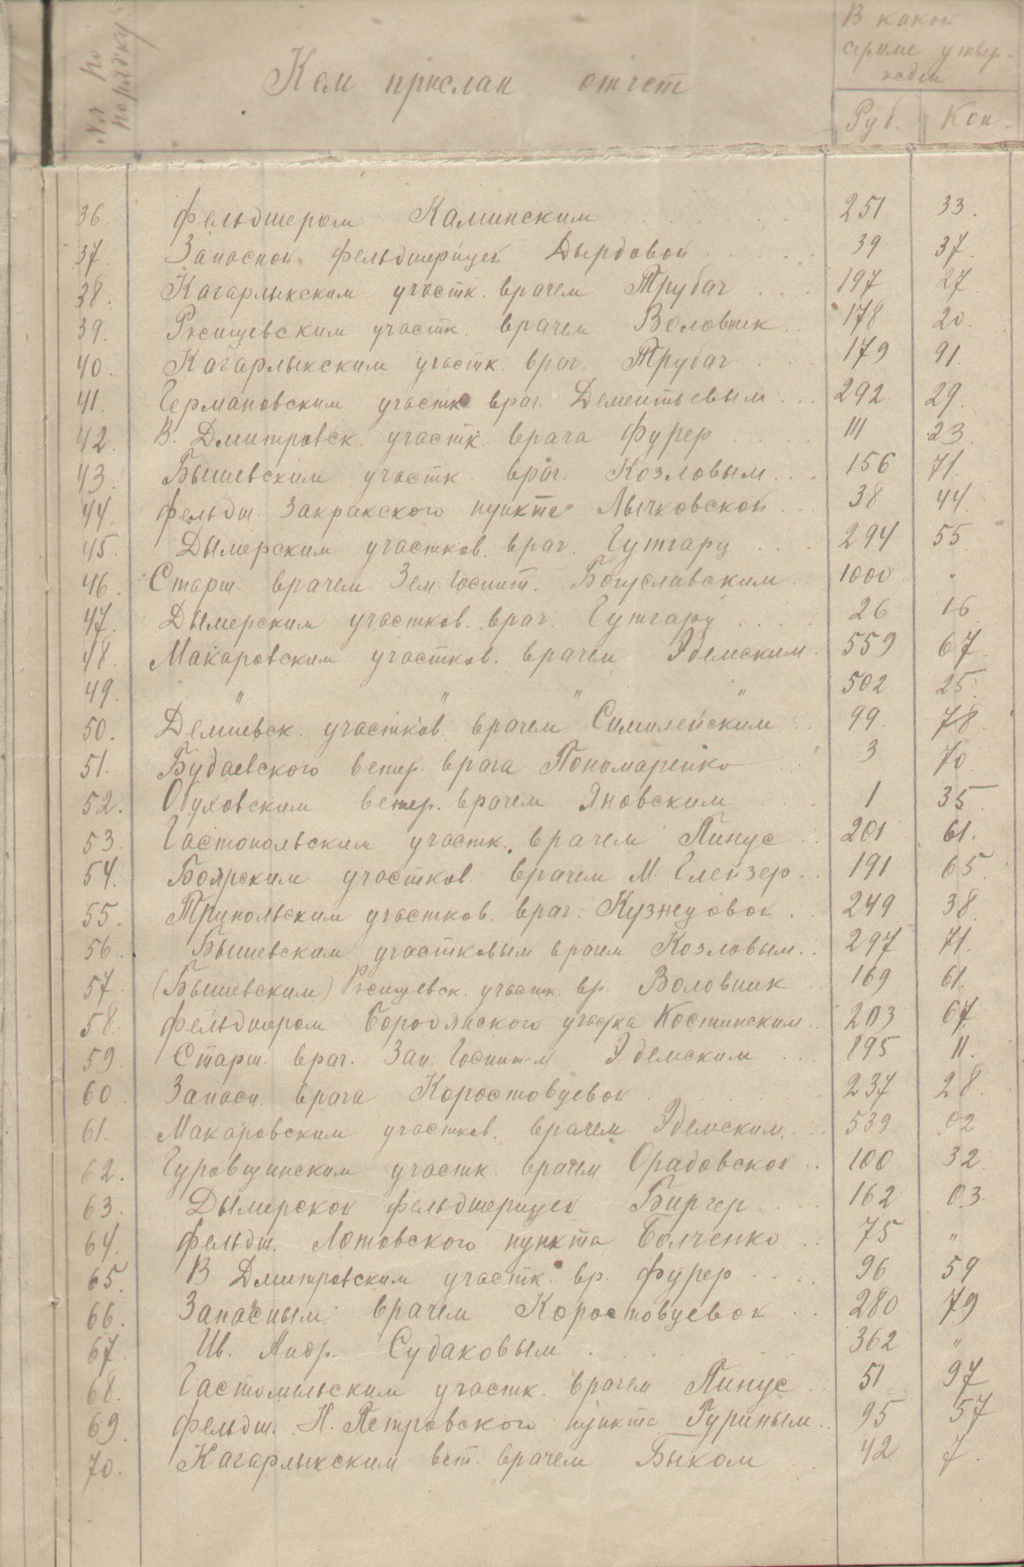 №№ по порядку
Кем прислан отчет
В какой сумме утвержден
Руб. Коп.
36. Фельдшером Каминским 251 33.
37. Запасной фельдшерицей Дырдовой 39 37.
38. Кагарлыкским участк. врачем Трубач 197 27
39. Ржищевским участк. врачем Воловник 178 20.
40. Кагарлыкским участк. врач. Трубач 179 91.
41. Германовским участк. врач. Дементьевым 292 29.
42. В. Дмитровск. участк. врача Фурер 111 23
43. Бышевским участк. врач. Козловым 156 71.
44. Фельдш. Закракского пункта Лычковской 38 44.
45. Дымерским участков. врач. Гутгарц 294 55
46. Старш. врачем Зем. Госпит. Богуславским 1000 -
47. Дымерским участков. врач. Гутгарц 26 16
48. Макаровским участков. врачем Эдемским 559 67
49. " " " " 502 25.
50. Демиевск. участков. врачем Самилейским 99 78
51. Будаевского ветер. врача Пономаренко 3 70
52. Обуховским ветер. врачем Яновским 1 35
53. Гостомльским участк. врачем Пинус 201 61.
54. Боярским участков. врачем М. Глейзер 191 65
55. Трипольским участков. врач. Кузнецовой 249 38
56. Бышевским участковым врачем Козловым 297 71.
57. (Бышевским) Ржищевск. участк. вр. Воловник 169 61.
58. Фельдшером Бородянского участка Костинским 203 67
59. Старш. врач. Зап. Госпит-м Эдемским 195 11.
60. Запасн. врача Коростовцевой 237 28
61. Макаровским участков. врачем Эдемским 539 02
62. Гуровщинским участк. врачем Орадовской 100 32
63. Дымерской фельдшерицей Биргер 162 03
64. Фельдш. Лотовского пункта Болченко 75 "
65. В Дмитровским участк. вр. Фурер 96 59
66. Запасным врачем Коростовцевой 280 79
67. Ив. Андр. Судаковым 362 "
68. Гостомльским участк. врачем Пинус 51 97
69. Фельдш. Н. Петровского пункта Гуриным 95 57
70. Кагарлыкским вет. врачем Быком 42 7